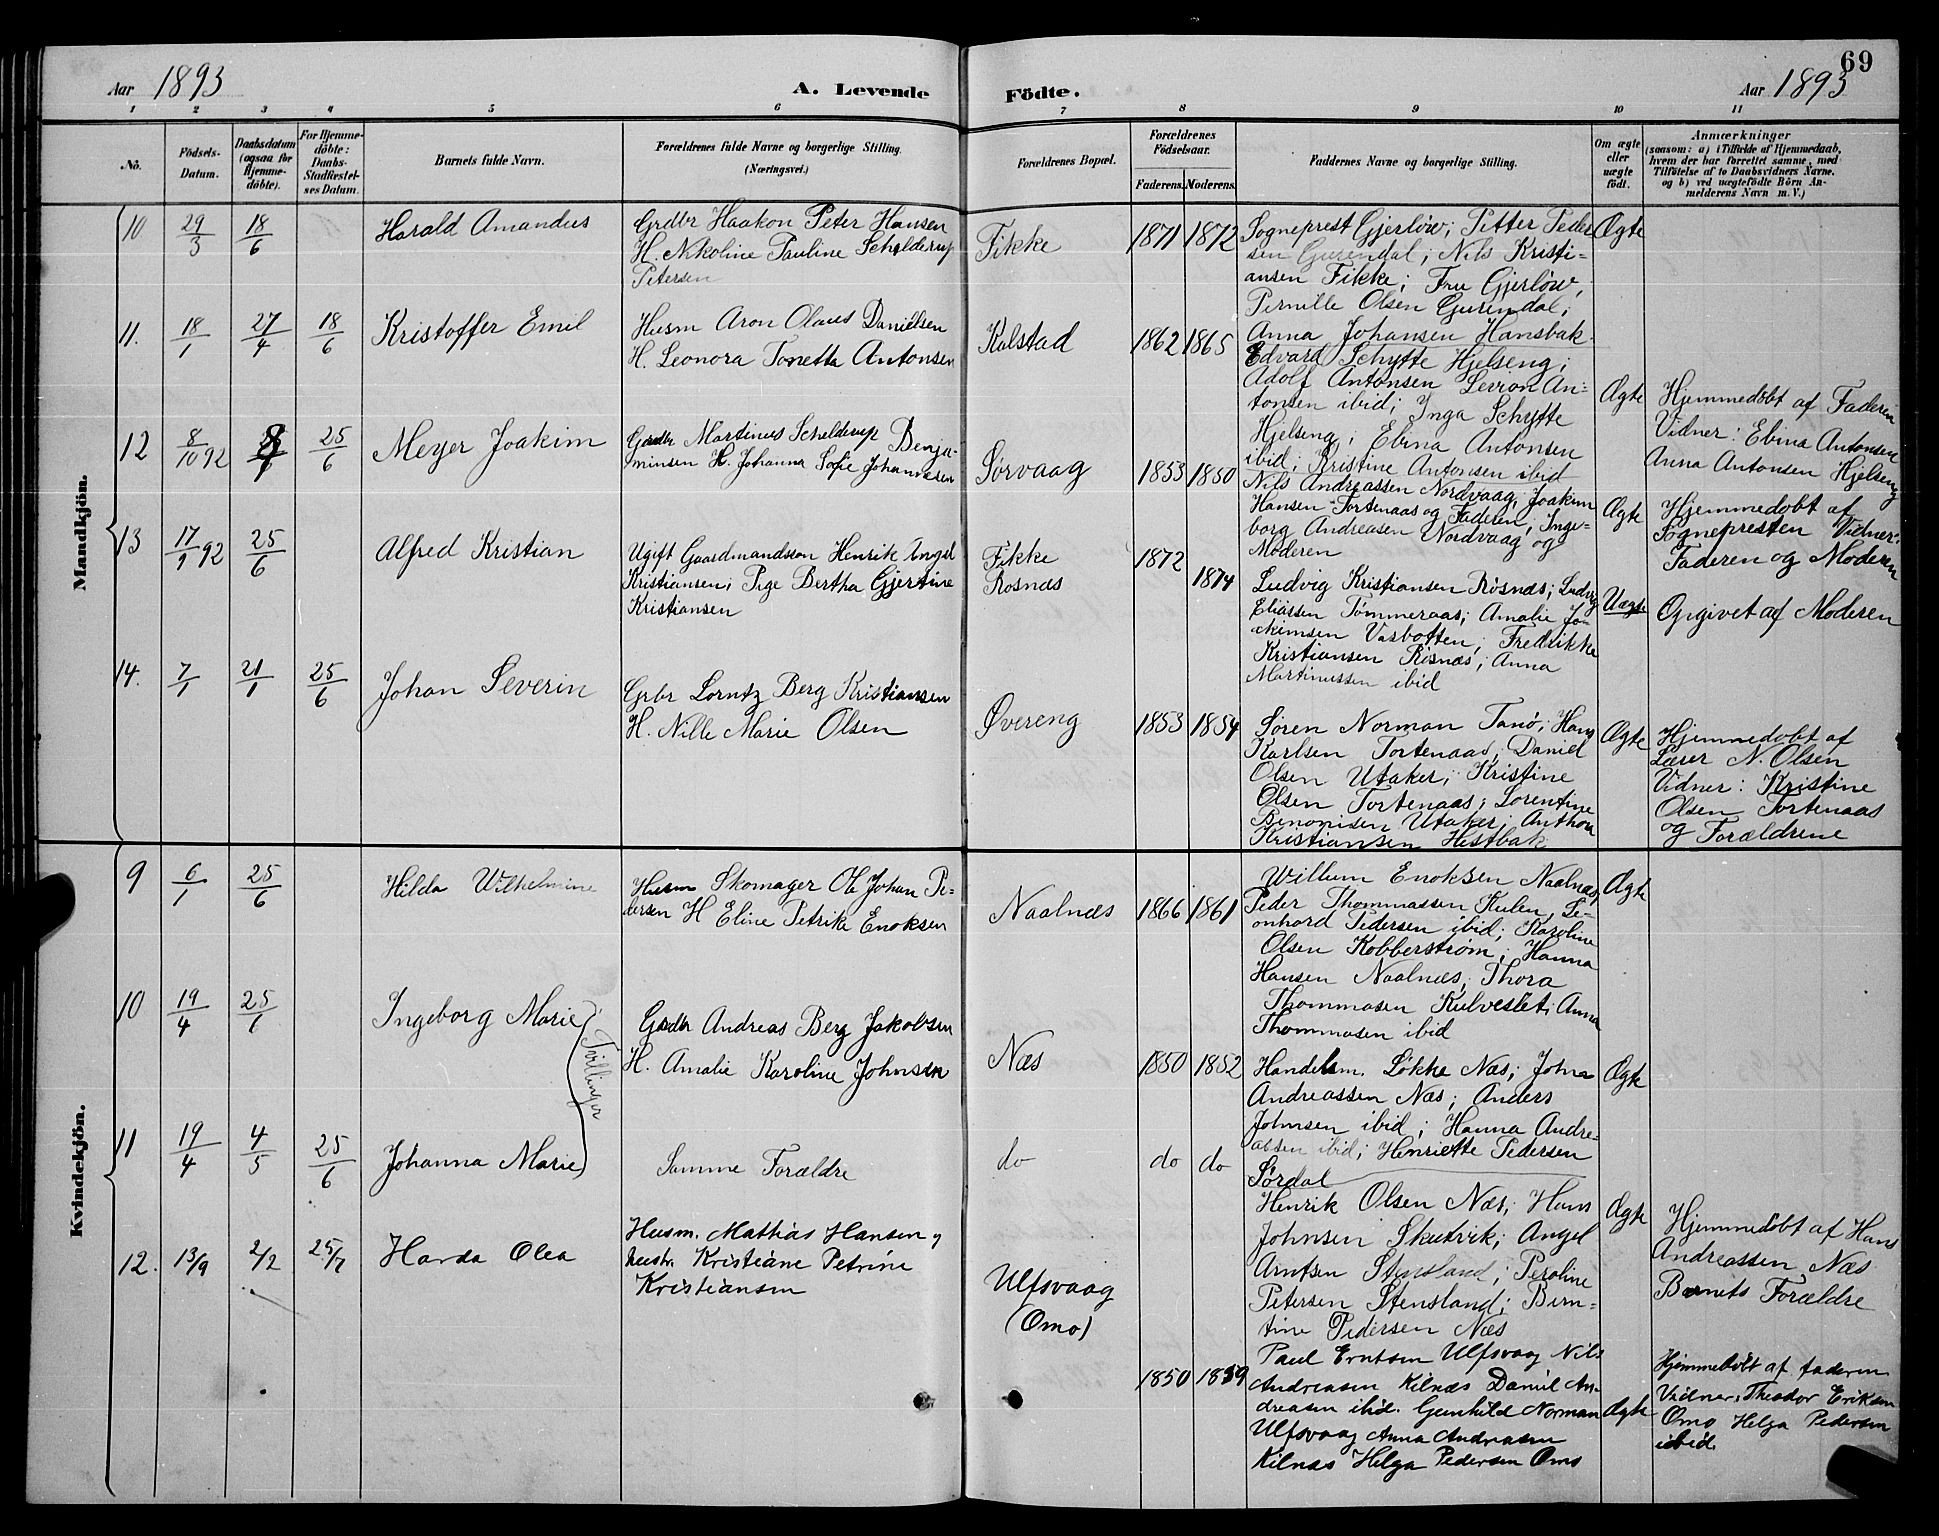 69
Aar 1893
A. Levende Födte.
Aar 1893
1 2 3 4 5 6 7 8 9 10 11
No.
Födsels-
Datum.
Daabsdatum
(ogsaa for
Hjemme-
döbte).
For Hjemme-
döbte:
Daabs-
Stadfæstel-
ses Datum.
Barnets fulde Navn.
Forældrenes fulde Navne og borgerlige Stilling.
(Næringsvei.)
Forældrenes Bopæl.
Forældrenes
Födselsaar.
Faderens. Moderens.
Faddernes Navne og borgerlige Stilling.
Om ægte
eller
uægte
födt.
Anmærkninger
(saasom: a) i Tilfælde af Hjemmedaab,
hvem der har forrettet samme, med
Tilföielse af to Daabsvidners Navne.
og b) ved uægtefödte Börn An-
melderens Navn m. V.)
Mandkjön.
10 29/3 18/6 Harald Amandus
Grdbr Haakon Peter Hansen
H. Nikoline Pauline Schelderup
Petersen
Fikke 1871 1872
Sogneprest Gjerløw; Petter Peder
sen Gurendal; Nils Kristi=
ansen Fikke; Fru Gjerløw,
Pernille Olsen Gurendal;
Anna Johansen Hansbak
Ægte
11. 18/1 27/4 18/6 Kristoffer Emil
Husm Aron Olaus Danielsen
H. Leonora Tonetta Antonsen
Kalstad 1862 1865
Edvard Schytte Hjelseng;
Adolf Antonsen Levron An=
tonsen ibid; Inga Schytte
Hjelseng; Ebina Antonsen
ibid; Kristine Antonsen ibid
Ægte
Hjemmedøbt af Faderen
Vidner: Ebina Antonsen
Anna Antonsen Hjelseng
12 8/10 92 25/6 Meyer Joakim
Gardbr Martinus Schelderup Benja-
minsen H. Johanna Sofie Johannesen
Sørvaag 1853 1850
Nils Andreassen Nordvaag, Joakim
Hansen Tortenaas og Faderen, Inge=
borg Andreasen Nordvaag og
Moderen
Ægte
Hjemmedøbt af
Sognepresten Vidner:
Faderen og Moderen
13 17/9 92 25/6 Alfred Kristian
Ugift Gaardmandssøn Henrik Angel
Kristiansen; Pige Bertha Gjertine
Kristiansen
Fikke
Rosnæs
1872
1874
Ludvig Kristiansen Røsnæs; Ludvig
Eliassen Tømmeraas; Amalie Jo-
akimsen Vasbotten; Fredrikke
Kristiansen Røsnæs; Anna
Martinussen ibid
Uægte
Opgivet af Moderen
14. 7/1 21/1 25/6 Johan Severin
Grbr Lorntz Berg Kristiansen
H. Nille Marie Olsen
Øvereng 1853 1854
Søren Norman Tanø; Hans
Karlsen Tortenaas; Daniel
Olsen Utaker; Kristine
Olsen Tortenaas; Lorentine
Benonisen Utaker; Anthon
Kristiansen Hestbak
Ægte
Hjemmedøbt af
Lærer N. Olsen
Vidner: Kristine
Olsen Tortenaas
og Forældrene
Kvindekjön.
9 6/1 25/6 Hilda Wilhelmine
Husm Skomager Ole Johan Pe-
dersen H Eline Petrike Enoksen
Naalnæs 1866 1861
Willum Enoksen Naalnæs,
Peder Thommassen Kulen, Le-
onhard Pedersen ibid; Karoline
Olsen Kobberstrøm; Hanna
Hansen Naalnæs; Thora
Thommasen Kulveslet; Anna
Thommasen ibid
Ægte
10 19/4 25/6 Ingeborg Marie
Tvillinger
Gardbr Andreas Berg Jakobsen
H. Amalie Karoline Johnsen
Næs 1850 1852
Handelsm. Løkke Næs; Johna
Andreassen Næs; Anders
Johnsen ibid; Hanna Andre-
assen ibid; Henriette Pedersen
Sørdal
Ægte
11 19/4 4/5 25/6 Johanna Marie
Samme Forældre
do do do
Henrik Olsen Næs; Hans
Johnsen Skutvik; Angel
Arntsen Stensland; Peroline
Petersen Stensland; Bern=
tine Pedersen Næs
Ægte
Hjemmedøbt af Hans
Andreassen Næs
Barnets Forældre
12. 13/9 2/2 25/7 Harda Olea
Husm. Mathias Hansen og
hustr. Kristiane Petrine
Kristiansen
Ulfsvaag
(Omo)
1850 1859
Paul Erntsen Ulfsvaag Nils
Andreasen Kilnæs Daniel An-
dreasen ibid. Gunhild Norman
Ulfsvaag Anna Andreasen
Kilnæs Helga Pedersen Omo
Ægte
Hjemmedøbt af faderen
Vidner, Theodor Eriksen
Omo Helga Pedersen
ibid.